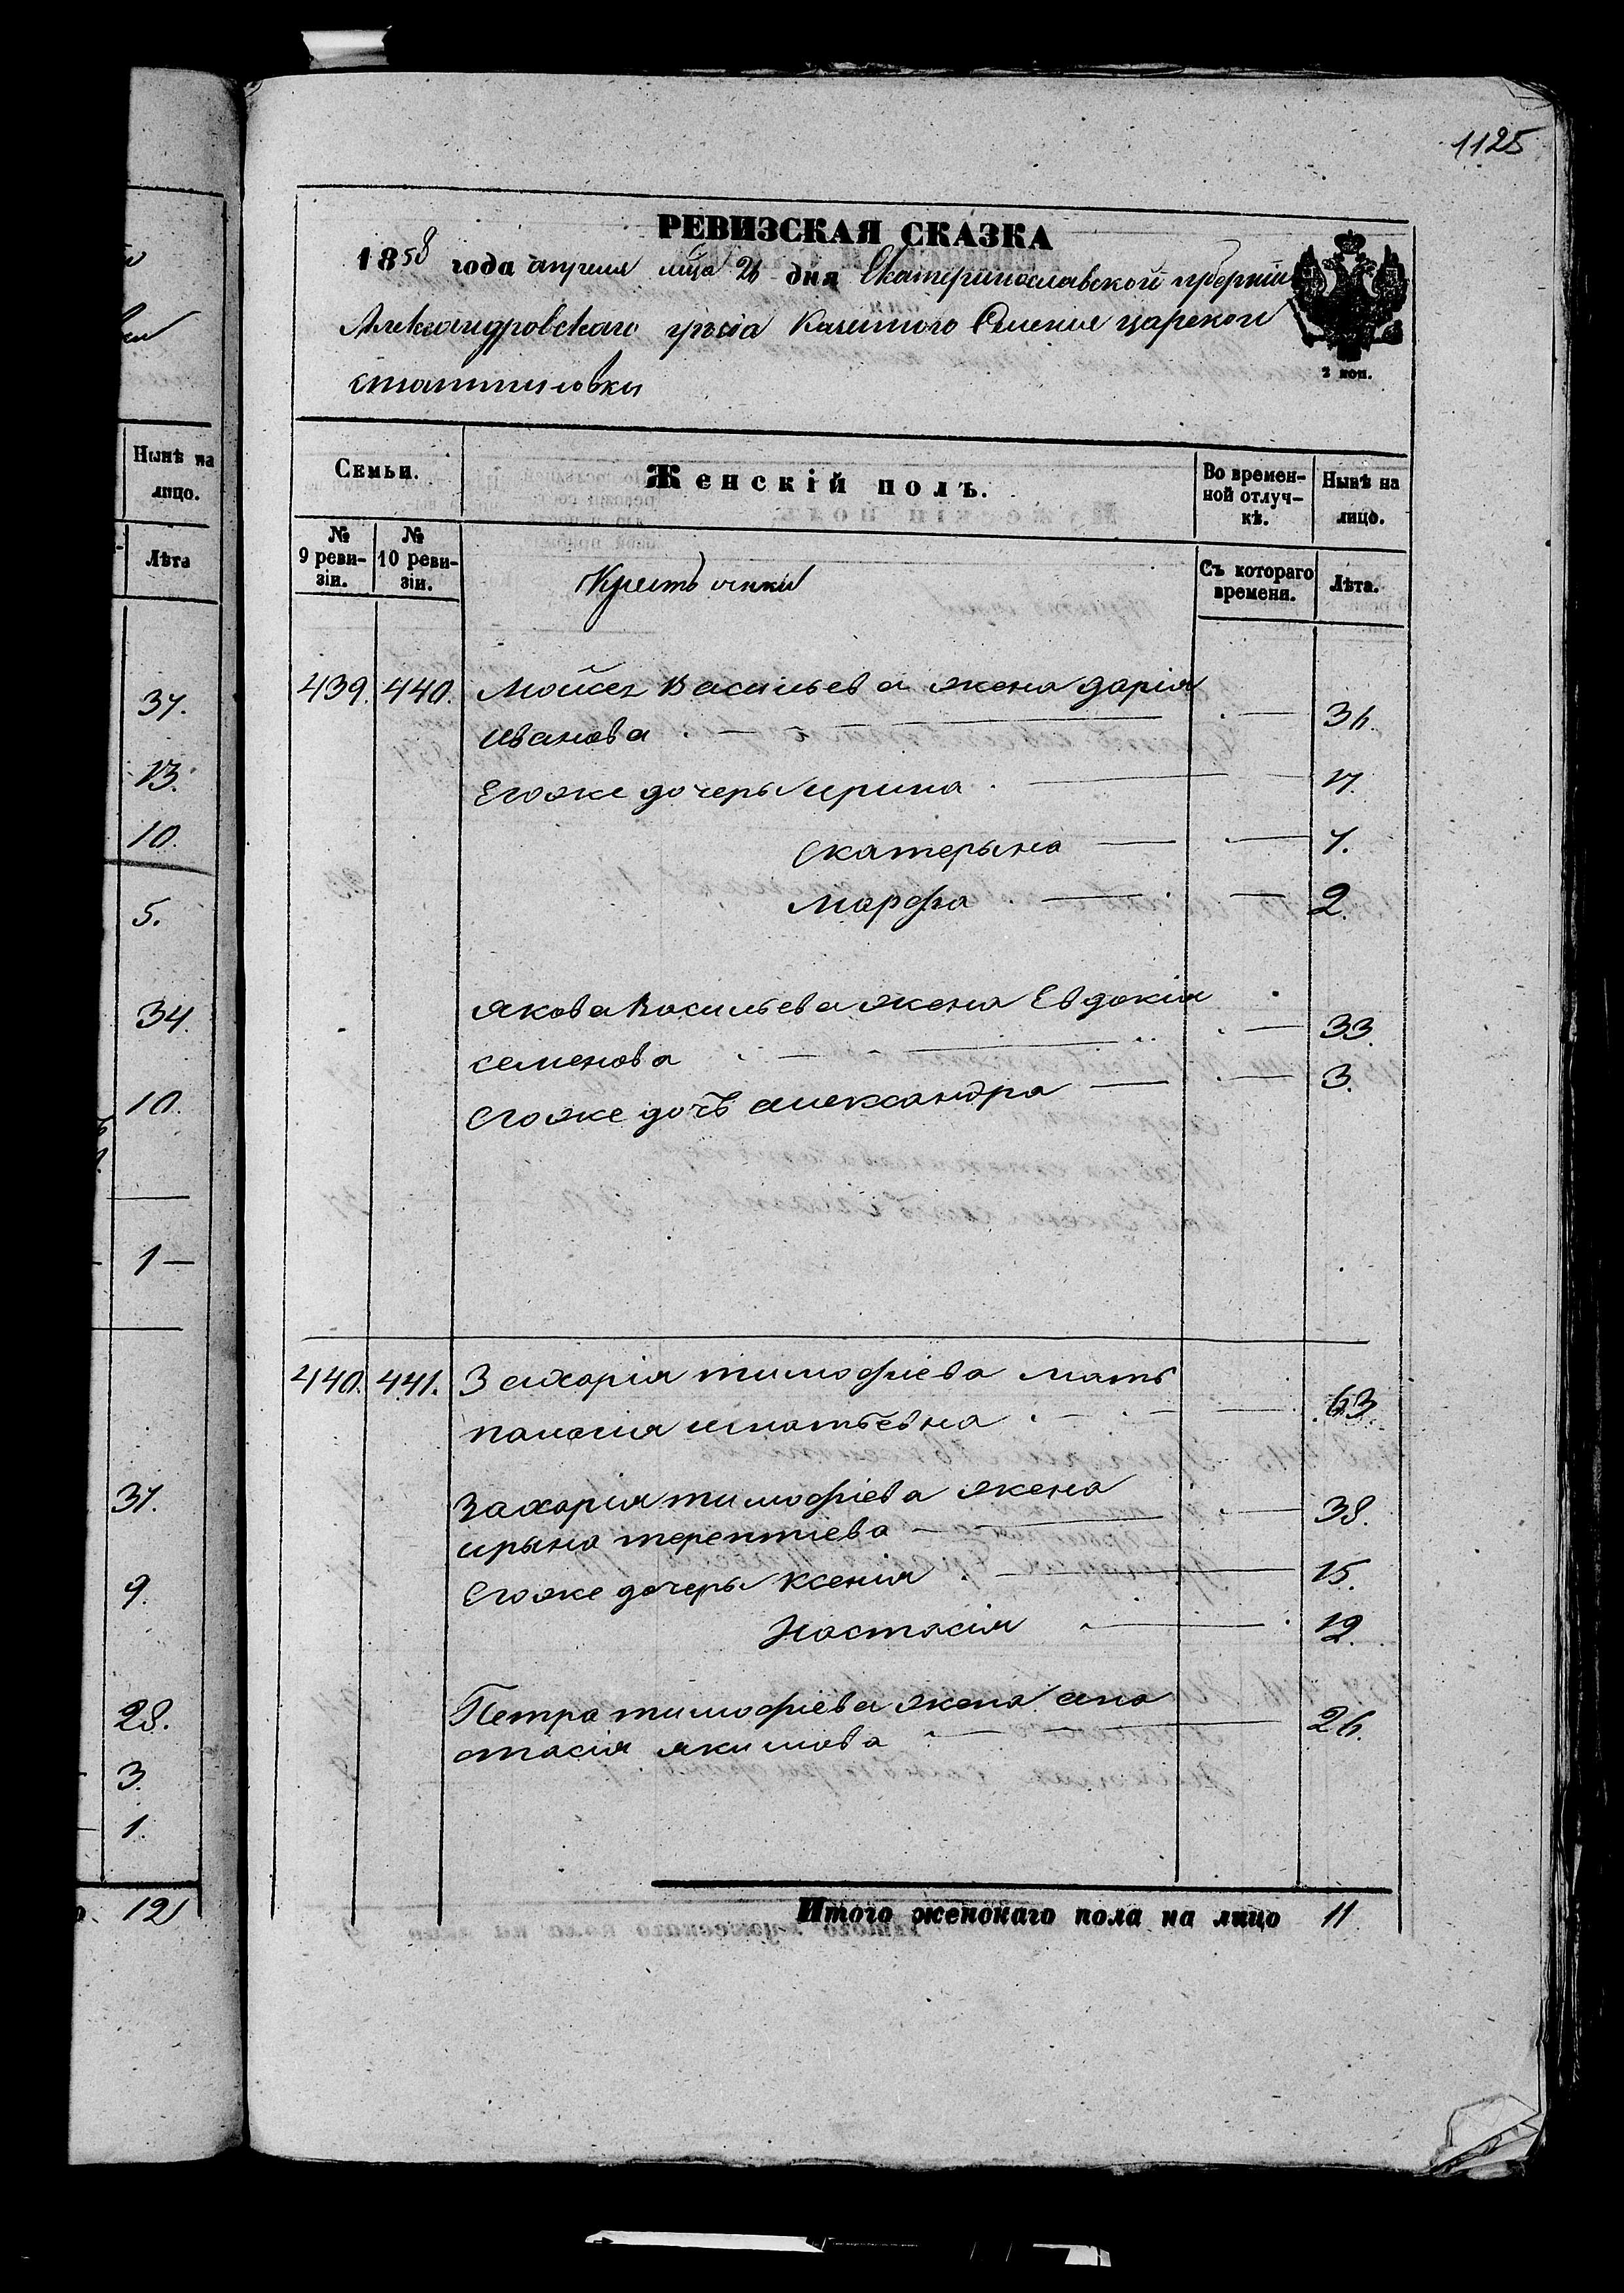 1125
РЕВИЗСКАЯ СКАЗКА
1858 года апреля мца 26 дня Екатеринославской губерніи
Александровскаго уезда Казенного Селения царекон
стантиновки
2 коп.
Семьи.
Женскій полъ.
Во времен-
ной отлуч-
кѣ.
Нынѣ на
лицо.
№
9 реви-
зіи.
№
10 реви-
зіи.
Крестьянки
Съ котораго
времени.
Лѣта.
439. 440. Мойсея Васильева жена дарія
иванова 36.
Егоже дочери ирина 17.
Екатерына 7.
Марфа 2.
Якова Васильева жена Евдокія
семенова 33.
Егоже дочь александра 3.
440. 441. Захарія тимофіева мать
палагия игнатьевна 63.
Захарія тимофіева жена
ирына терентиева 38.
Егоже дочери Ксенія 15.
Настасія 12.
Петра тимофіева жена ана
стасія якимова 26.
Итого женскаго пола на лицо 11
Нынѣ на
лицо.
Лѣта
37.
13.
10.
5.
34.
10.
1
37.
9.
28.
3.
1.
12